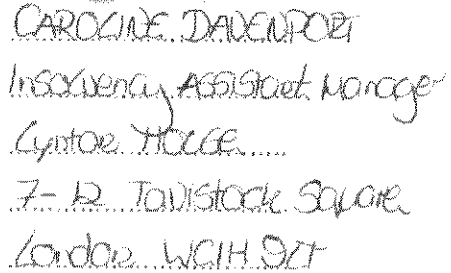 CAROLINE DAVENPORT
Insolvency Assistant Manager
Lynton House
7-12 Tavistock Square
London WC1H 9LT